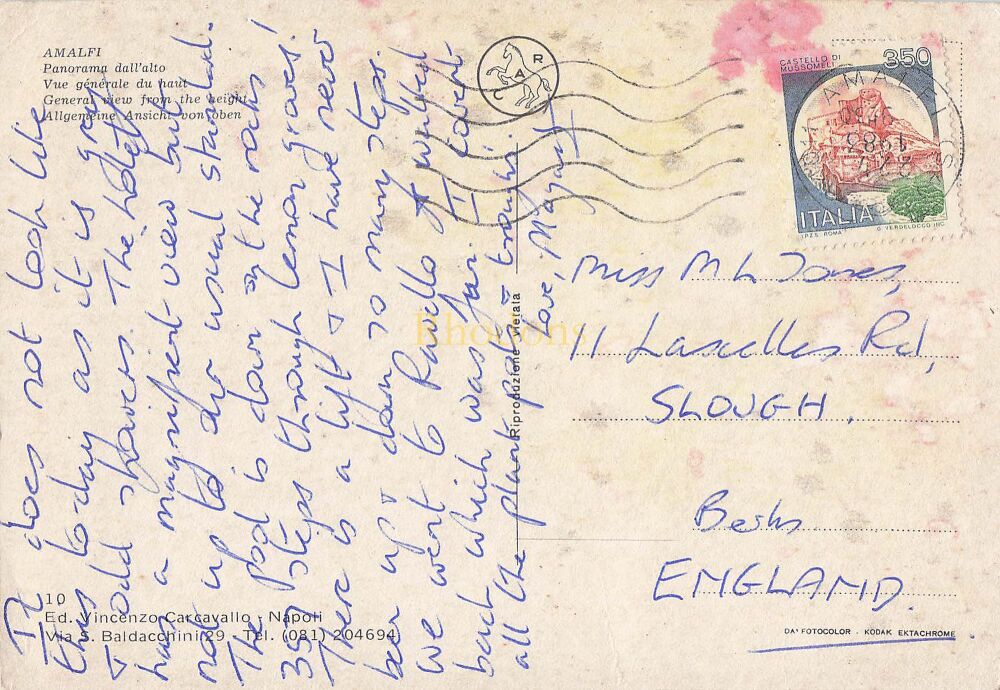 AMALFI
Panorama dall'alto
Vue générale du haut
General view from the height
Allgemeine Ansicht von oben
It does not look like
this to-day as it is grey
& odd showers. The hotel
has a magnificent view but
not up to our usual standard.
The pool is down on the rocks
357 steps through lemon groves!
There is a lift & I have never
been up & down so many steps.
We went to Ravello & walked
back which was fun. I covert
all the plant pots & troughs.
Love, Margaret
10
Ed. Vincenzo Carcavallo - Napoli
Via S. Baldacchini 29 - Tel. (081) 204694
CAR
Riproduzione vietata
CASTELLO DI
MUSSOMELI
350
ITALIA
I.P.Z.S. ROMA
G. VERDELOCCO INC.
AMALFI
1983
Miss M L Jones,
11 Lascelles Rd,
SLOUGH.
Berks
ENGLAND.
DA FOTOCOLOR - KODAK EKTACHROME